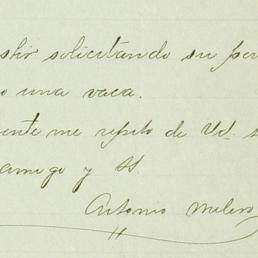 solicitando su per
o una vaca.
ente me repito de Vd. s
amigo y SS
Antonio